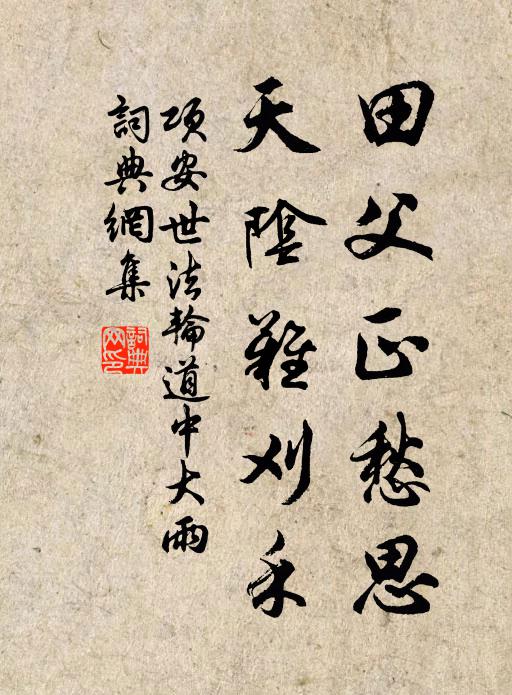 田父正愁思
天陰難刈禾
項安世法輪道中大雨
詞典網集
詞典網印